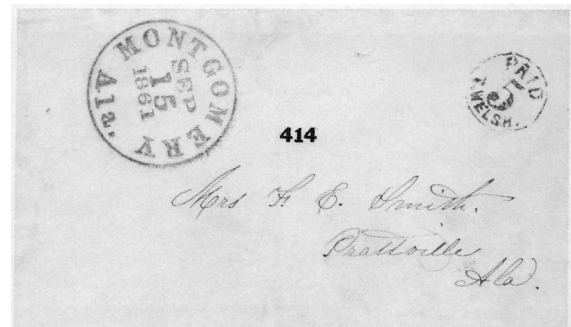 MONTGOMERY Ala.
SEP
15
1861
PAID
5
WELSH.
414
Mrs F. E. Smith.
Prattville
Ala.